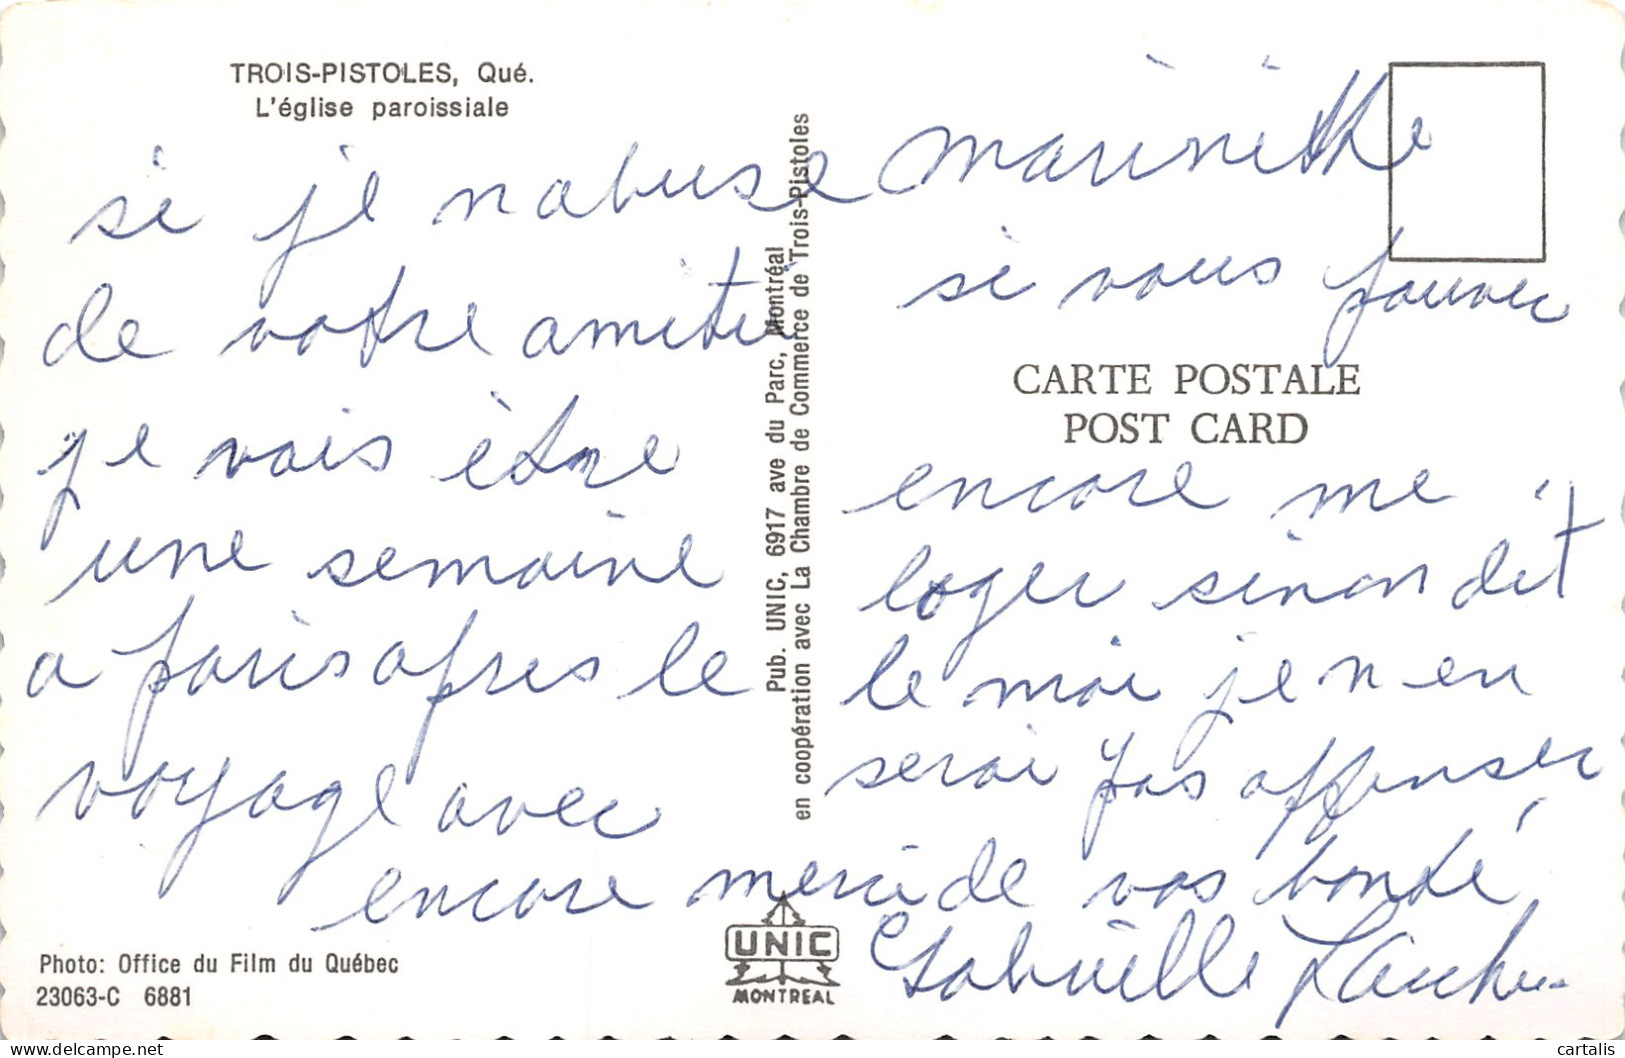 TROIS-PISTOLES, Qué.
L'église paroissiale
si je nabuse
de votre amitié
je vais être
une semaine
a paris apres le
voyage avec
marinithe
si vous pouvez
CARTE POSTALE
POST CARD
encore me
loger sinon dit
le moi je n en
serai pas offenser
encore merci de vos bonté
Gabrielle
Pub. UNIC, 6917 ave du Parc, Montréal
en coopération avec La Chambre de Commerce de Trois-Pistoles
UNIC
MONTREAL
Photo: Office du Film du Québec
23063-C 6881
cartalis